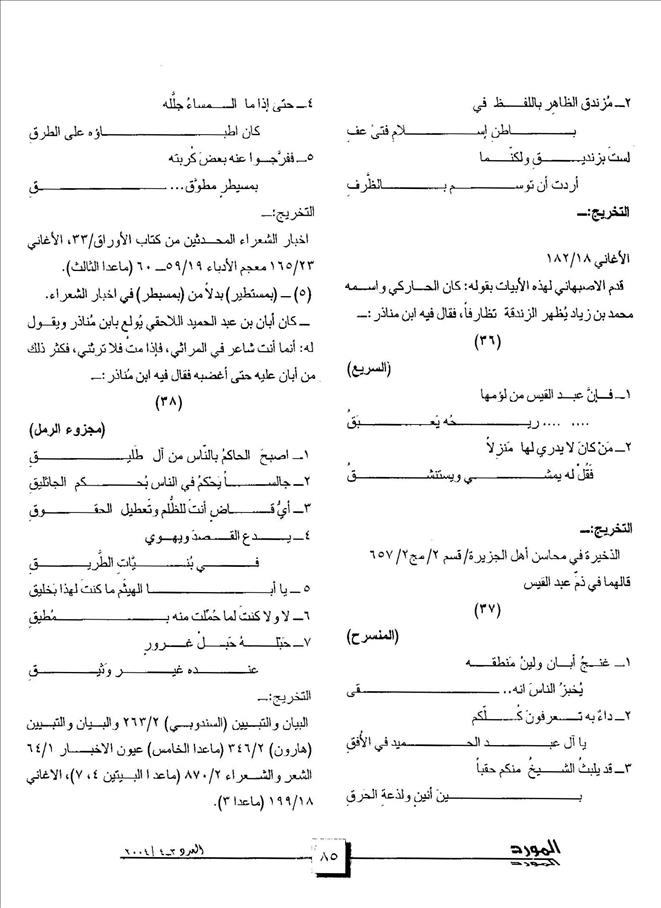 ٢ـ مُزندق الظاهرِ باللفـظ في
بـاطنِ إسـلام فتىً عفِ
لستَ بزنديـقٍ ولكنّـما
أردت أن توسـم بـالظَّرفِ
التخريج:ـ
الأغاني ١٨٢/١٨
قدم الاصبهاني لهذه الأبيات بقوله: كان الحاركي واسمه
محمد بن زياد يُظهر الزندقة تظارفاً، فقال فيه ابن مناذر:ـ
(٣٦)
(السريع)
١ـ فـإنَّ عبـد القيس من لؤمها
.... .... ريـحُه يَعـبَقُ
٢ـ مَنْ كانَ لا يدري لها مَنزلاً
فَقُلْ له يمشـي ويستنشـقُ
التخريج:ـ
الذخيرة في محاسن أهل الجزيرة/ قسم ٢/ مج٢/ ٦٥٧
قالهما في ذمّ عبد القيس
(٣٧)
(المنسرح)
١ـ غنـجُ أبـان ولينُ مَنطقـه
يُخبرُ الناسَ انه.. ـقى
٢ـ داءٌ به تـعرفونَ كُـلّكم
يا آل عبـد الحـميد في الأفقِ
٣ـ قد يلبثُ الشـيخُ منكم حقباً
بـينَ أنينٍ ولذعةِ الحَرقِ
٤ـ حتى إذا ما السـمساءُ جلَّله
كان اطبـاؤه على الطرقِ
٥ـ ففرَّجـوا عنه بعضَ كُربته
بمسيطرٍ مطوَّق... ـقِ
التخريج:ـ
اخبار الشعراء المحدثين من كتاب الأوراق/٣٣، الأغاني
١٦٥/٢٣ معجم الأدباء ٥٩/١٩ـ ٦٠ (ماعدا الثالث).
(٥) ـ (بمستطير) بدلاً من (بمسبطر) في اخبار الشعراء.
ـ كان أبان بن عبد الحميد اللاحقي يُولع بابن مُناذر ويقول
له: أنما أنت شاعر في المراثي، فإذا متُّ فلا ترثني، فكثر ذلك
من أبان عليه حتى أغضبه فقال فيه ابن مُناذر:ـ
(٣٨)
(مجزوء الرمل)
١ـ اصبحَ الحاكمُ بالنّاس من آل طَليـقِ
٢ـ جالسـاً يَحْكمُ في الناس بُحـكم الجاثليقِ
٣ـ أيُّ قـاضٍ أنتَ للظُلم وتَعطيل الحقـوقِ
٤ـ يـدع القـصدَ ويهوي
فـي بُنـيَّاتِ الطَّريـقِ
٥ـ يا أبـا الهيثَم ما كنتَ لهذا بَخليقِ
٦ـ لا ولا كنتَ لما حُمّلت منه بـمُطيقِ
٧ـ حَبَلُـهُ حَبـلْ غـرور
عنـده غيـر وَثيـقِ
التخريج:ـ
البيان والتبيين (السندوبي) ٢٦٣/٢ والبيان والتبيين
(هارون) ٣٤٦/٢ (ماعدا الخامس) عيون الاخبـار ٦٤/١
الشعر والشعراء ٨٧٠/٢ (ماعدا البيتين ٤، ٧)، الاغاني
١٩٩/١٨ (ماعدا ٣).
المورد
المورد
٨٥
العدد ٣ـ٤ / ٢٠٠٤